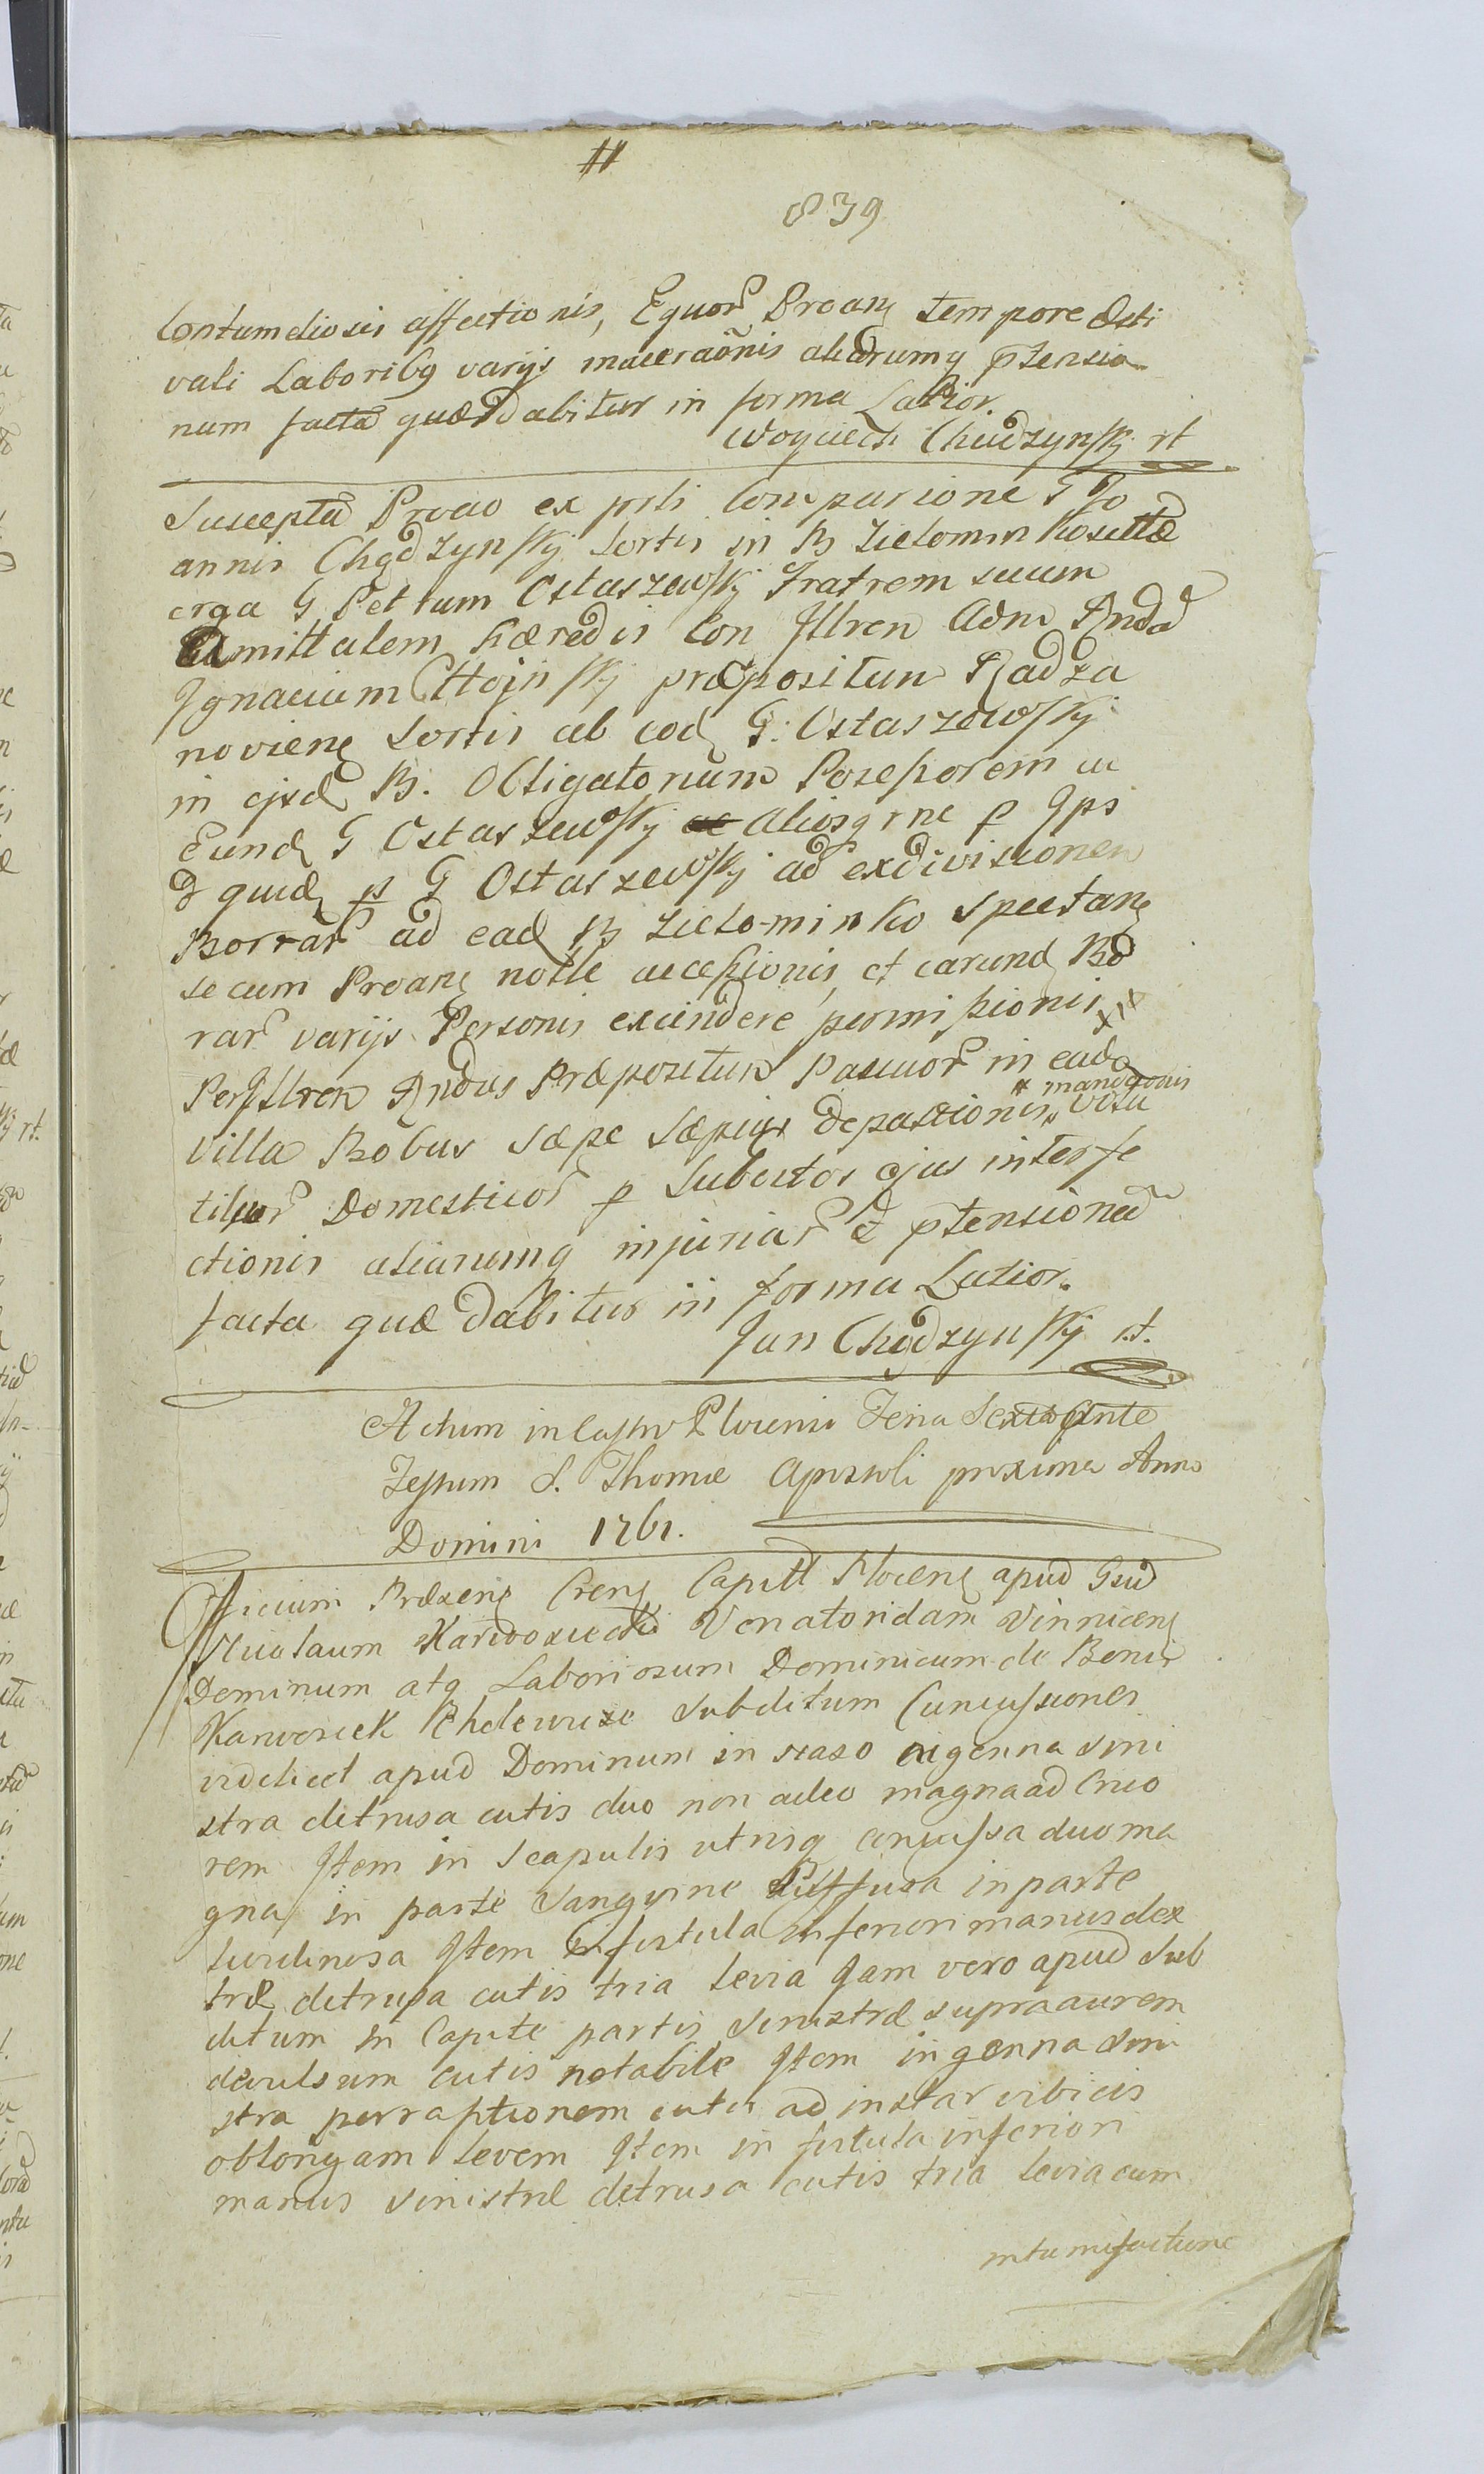 839
Contumeliosis affectionis, Equor Proang tempore Æsti
vali Laboribq varijs maceraonis aliarumq ptensio
num facta quæ dabitur in forma Latior.
Woyciech Chudzynski rt
Suscepta Proao ex prsti Comparione G Jo
annis Chądzynskij Sortis in B Zielomin Kosuttæ
erga G Petrum Ostaszewskij Fratrem suum
Amittalem hæredis Con Illren Adm Rndd
Ignacium Hojnskij præpositum Radza
novieng Sortis ab eod G. Ostaszewskij
in ejsd B. Obligatorium Posessorem ac
Eund G Ostaszewskij aliosq rne p Ips
& quid ps G Ostaszewskij ad exdivisionem
Borrar ad ead B Zielo-minko Spectang
secum Proang nolle accessionis, et earund Bo
rar varijs Personis excindere permissionis
Per Illren Rndus Præpositum Pascuor in ead
* mandationis
villa Bobus sæpe sæpius depastionis,
Domesticor p Subditos ejus interfe
ctionis aliarumq injuriar & ptensioned
facta quæ dabitur in forma Latior.
Jan Chądzynskij rt.
Actum in Castro Plocensi Feria Sexta Ante
Festum S. Thomæ Apostoli proxima Anno
Domini 1761.
Officium Præseng Creng Capitl Ploceng apud Gsum
Nicolaum Karwosiecki Venatoridam Vinniceng
Dominum atq Laboriosum Dominicum de Bonis
Karwosiek Cholewize subditum Concussiones
videlicet apud Dominum in naso genna sini
stra detrusa cutis duo non adeo magna ad Cruo
rem Item in Scapulis utrisq concussa duo ma
gna in parte Sangvine suffusa in parte
luridinosa Item in fistula inferiori manus dex
træ detrusa cutis tria levia Jam vero apud Sub
ditum in Capite partis Sinistræ supra aurem
devulsum cutis notabile Item in genna sini
stra perraptionem cutis ad instar vibicis
oblongam levem Item in fistula inferiori
manus sinistræ detrusa cutis tria levia cum
intumefactione